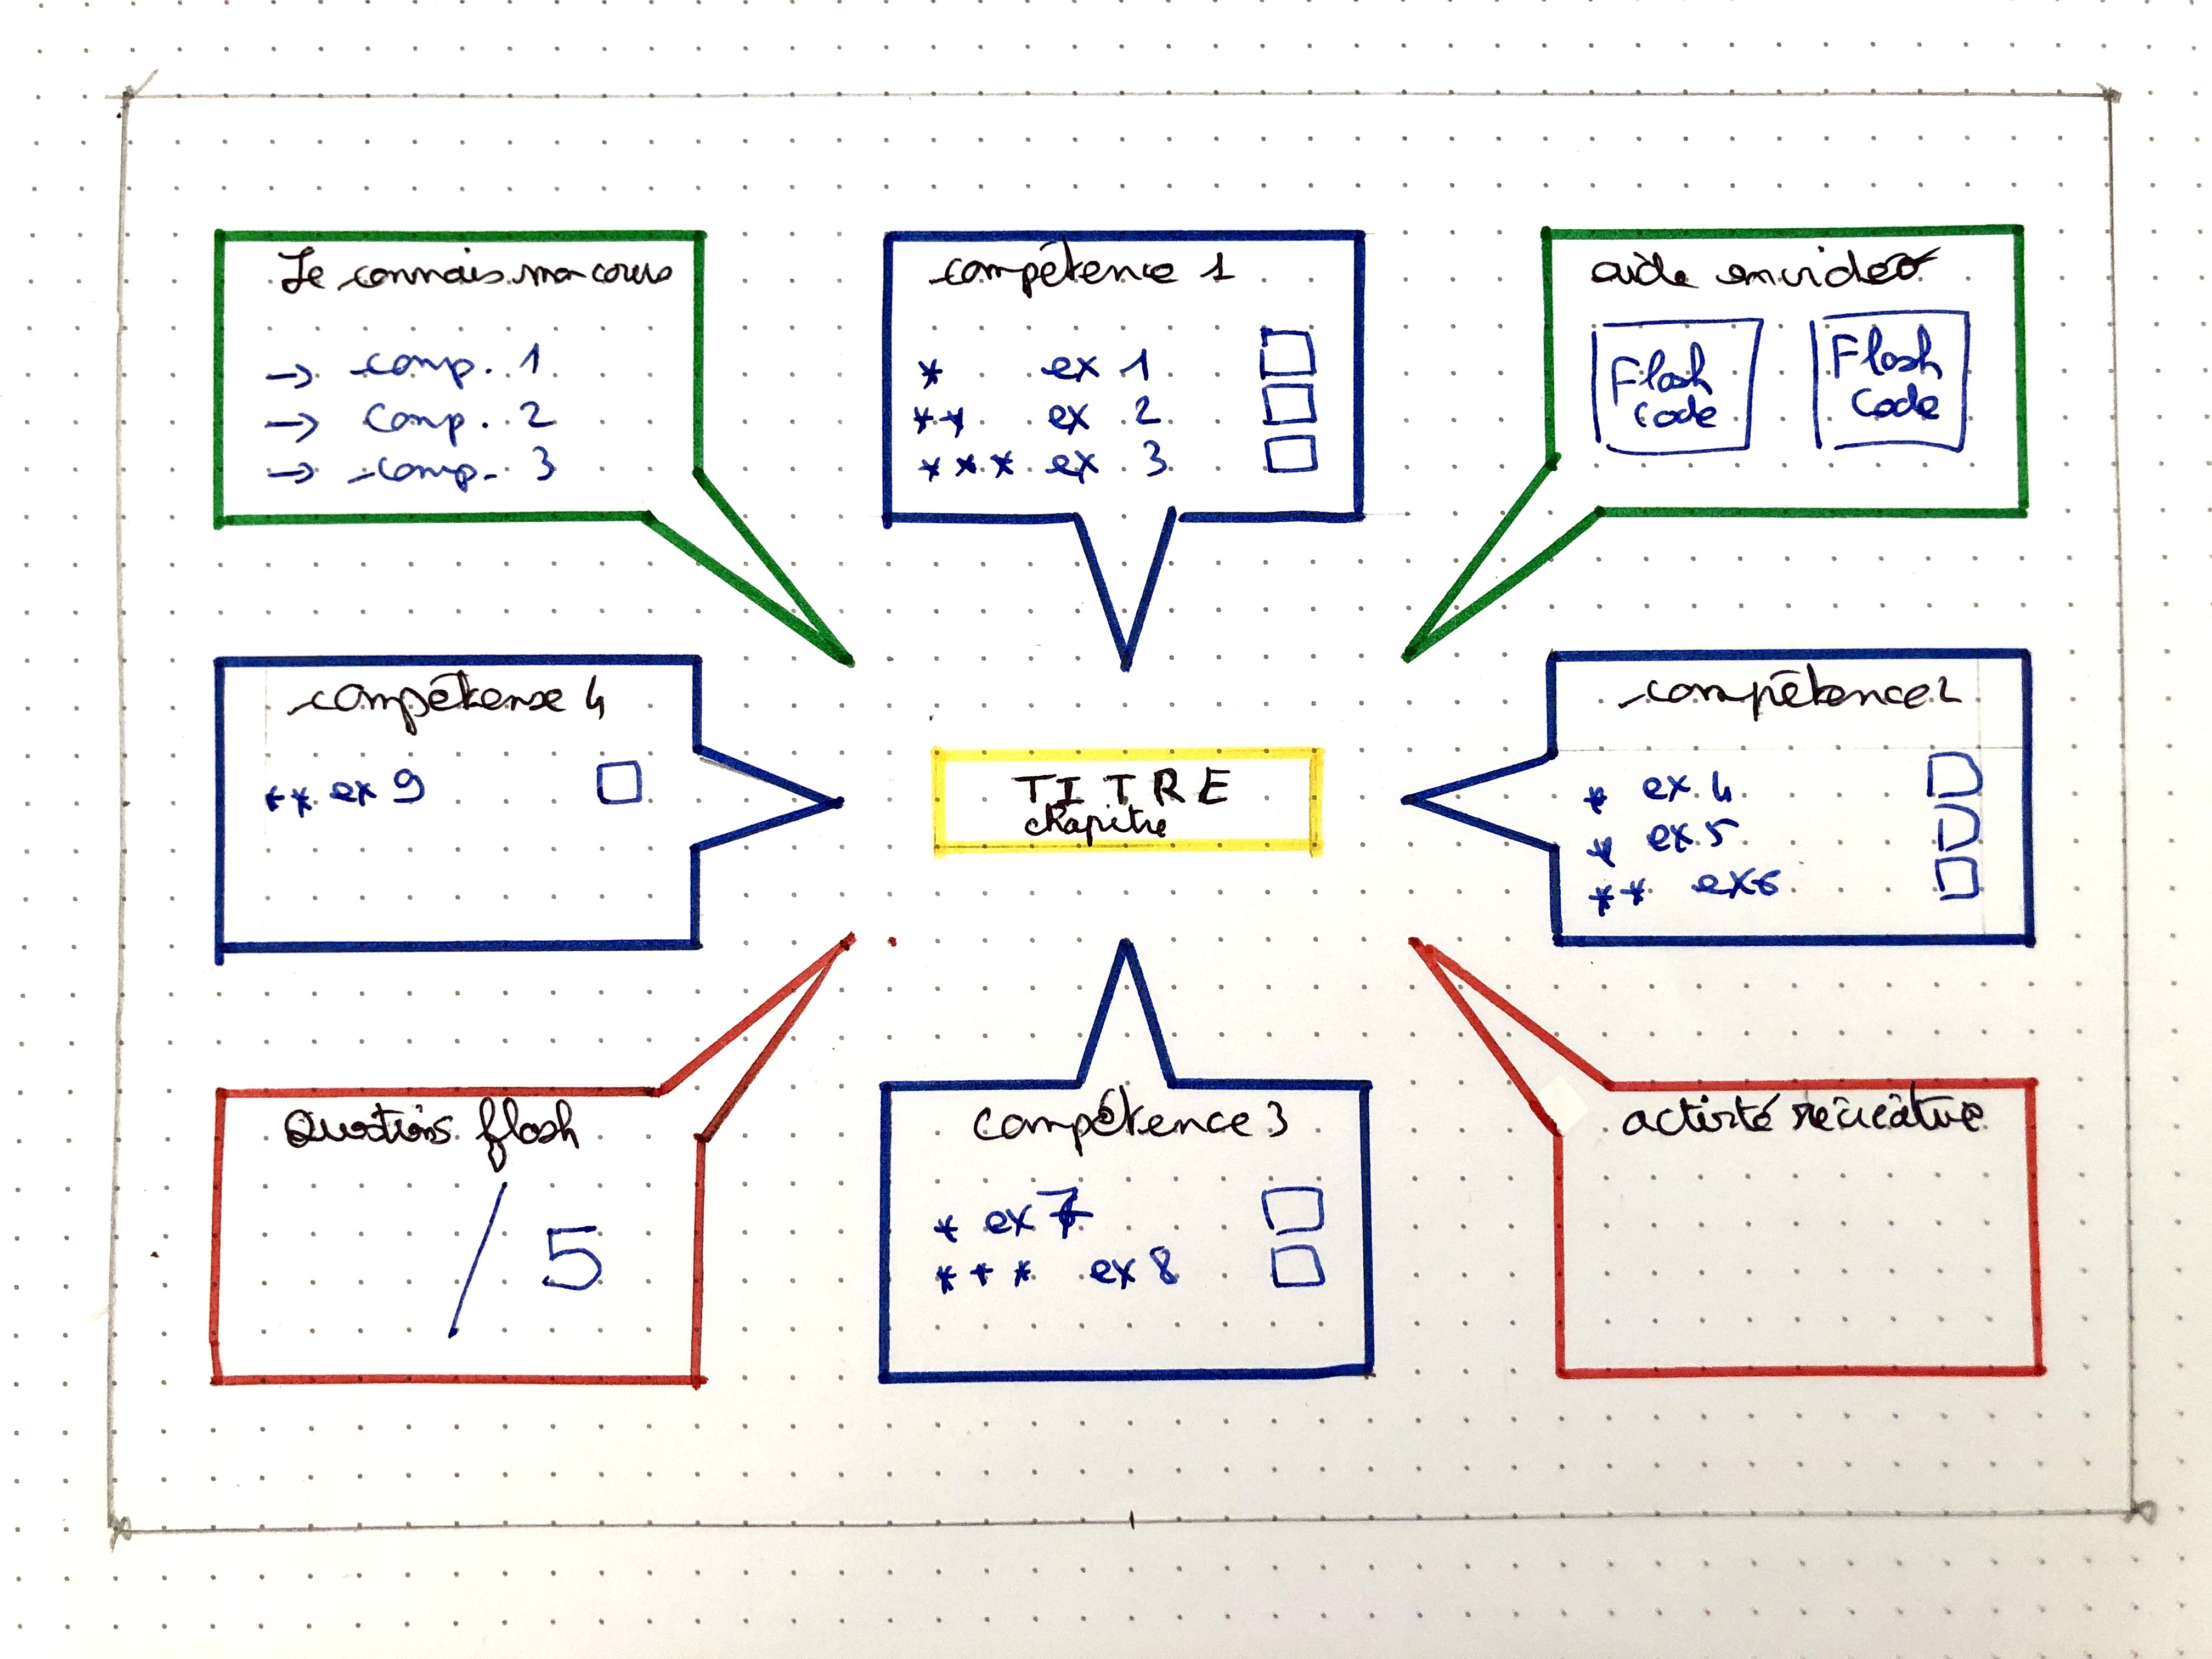 Je connais mon cours
→ comp. 1
→ comp. 2
→ comp. 3
compétence 1
* ex 1
** ex 2
*** ex 3
aide en vidéo
Flash
code
Flash
Code
compétence 4
** ex 9
TITRE
chapitre
compétence 2
* ex 4
* ex 5
** ex 6
Questions flash
/ 5
compétence 3
* ex 7
*** ex 8
activité récréative